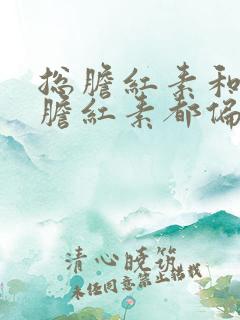 总膽紅素和
膽紅素都偏
清心晓筑
未经同意禁止搭载